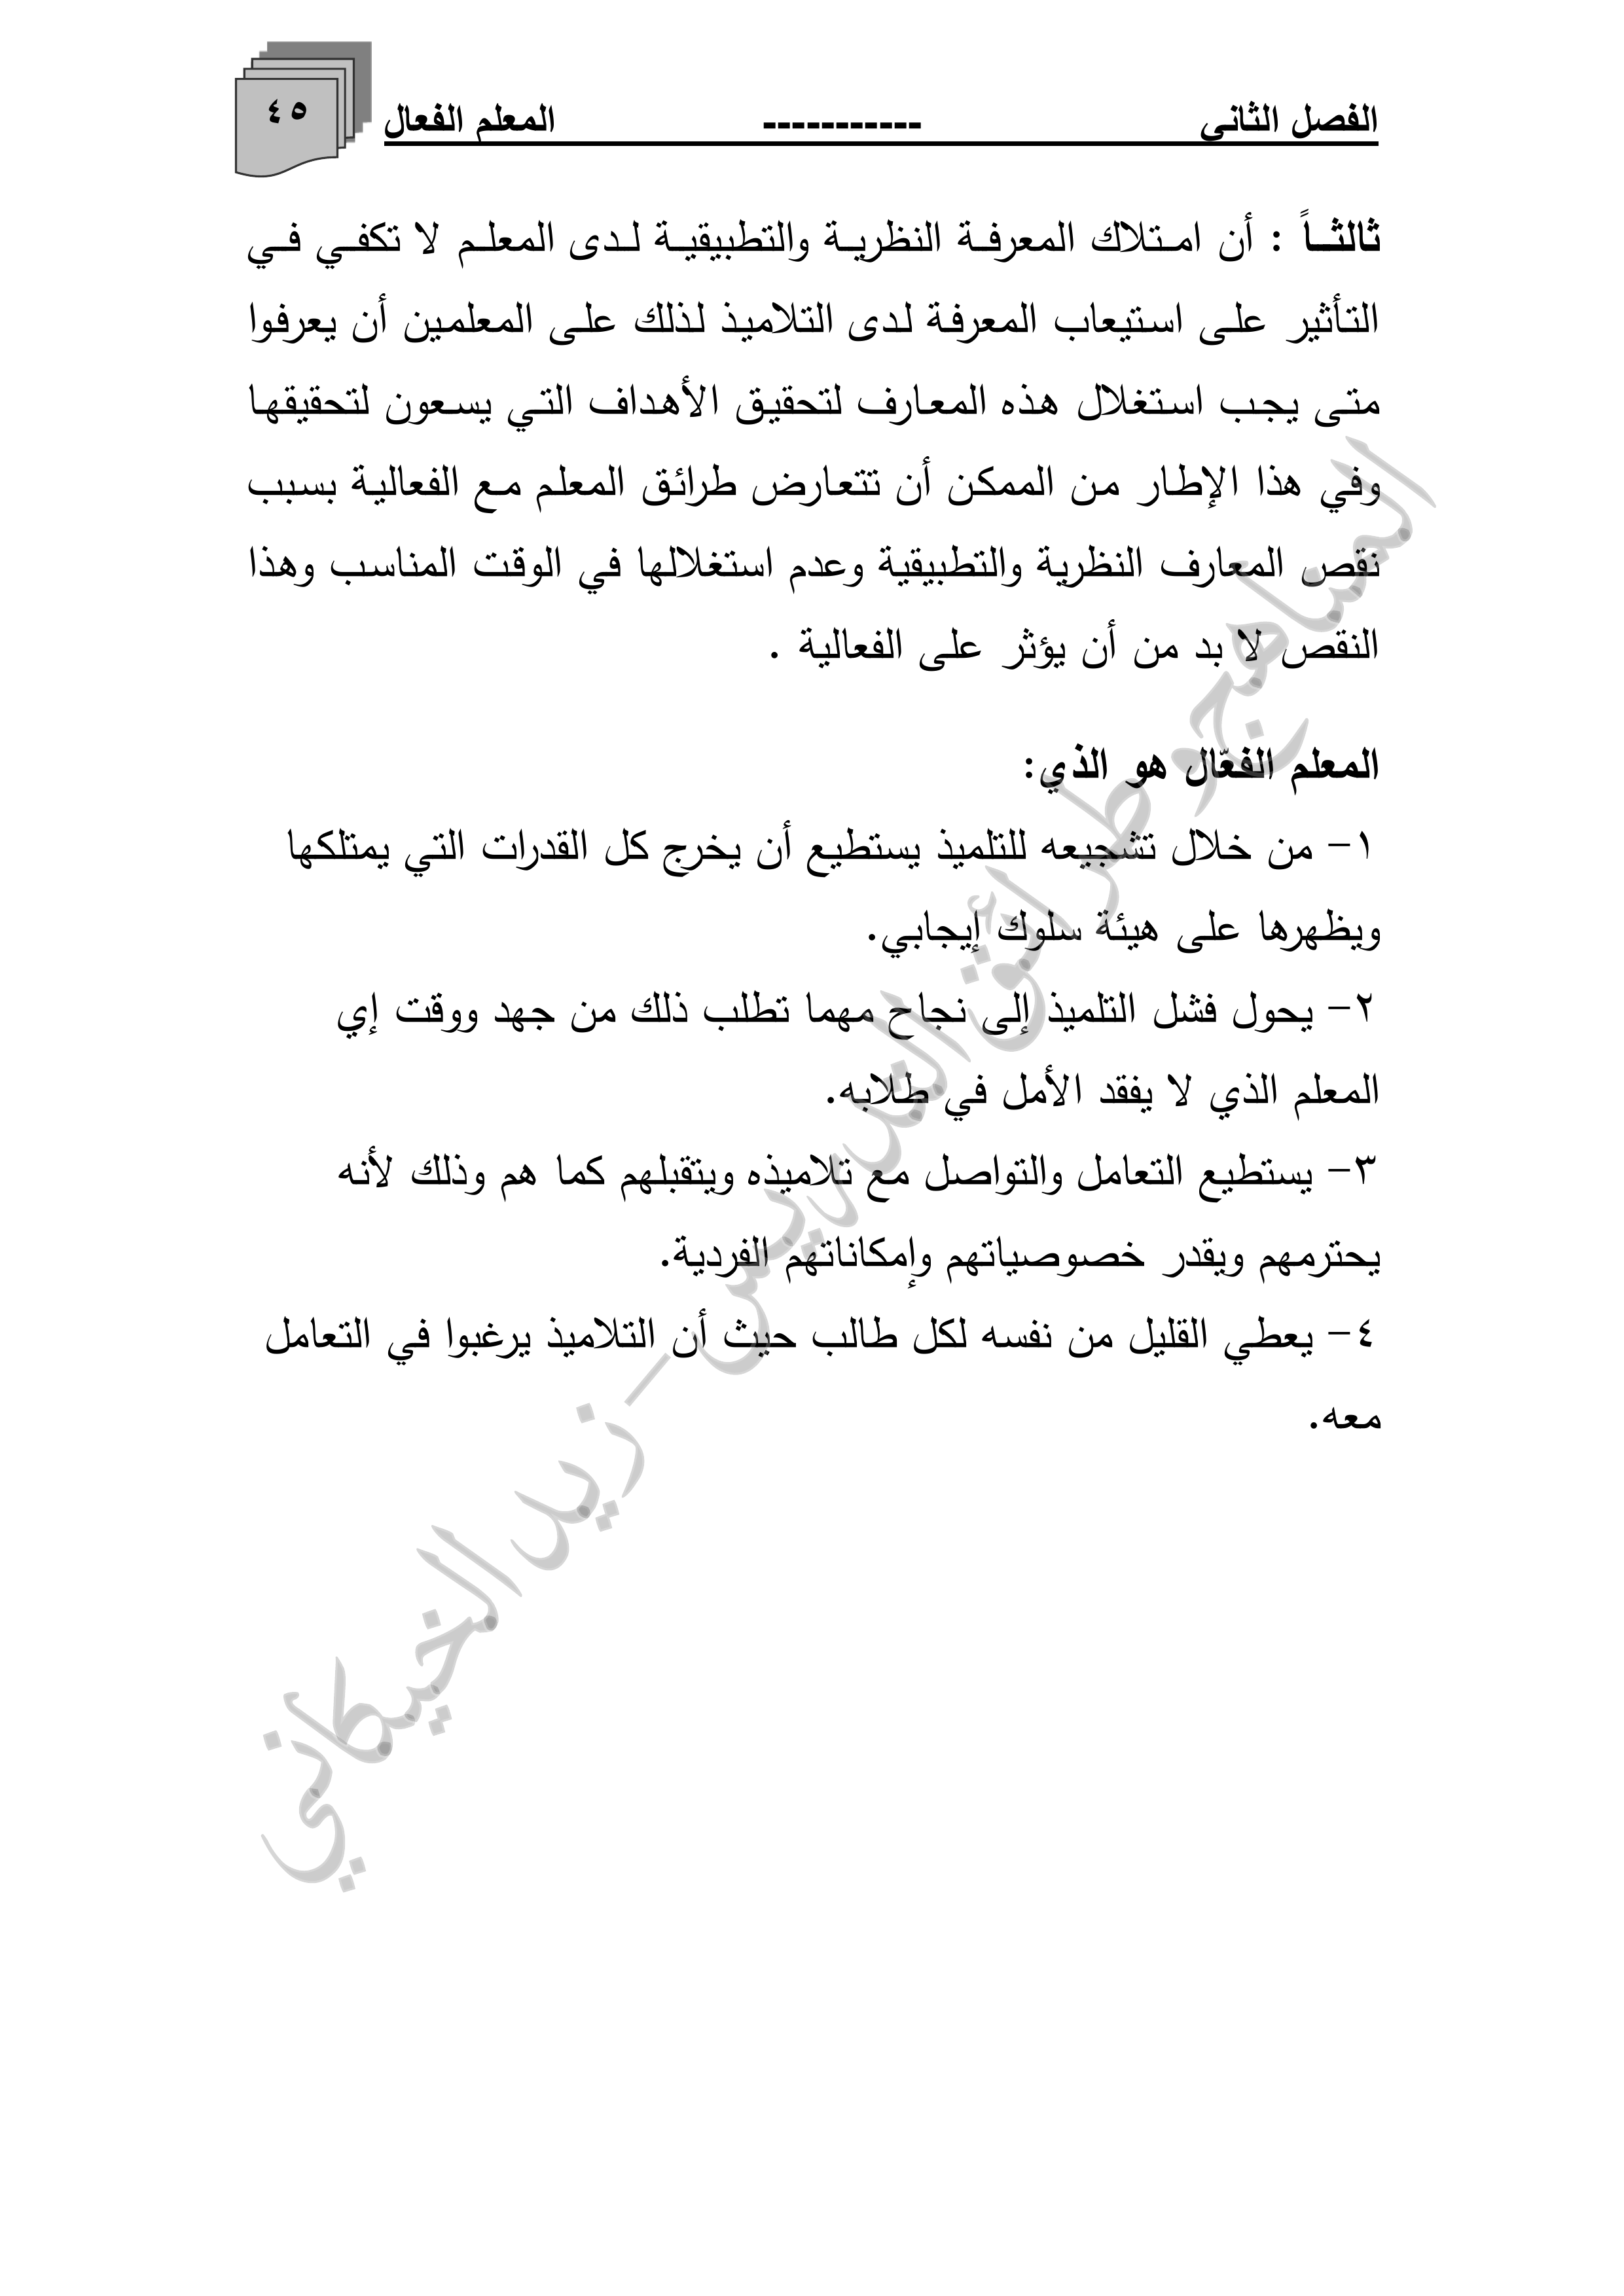 الفصل الثاني ----------- المعلم الفعال
٤٥
ثالثاً : أن امتلاك المعرفة النظرية والتطبيقية لدى المعلم لا تكفي في
التأثير على استيعاب المعرفة لدى التلاميذ لذلك على المعلمين أن يعرفوا
متى يجب استغلال هذه المعارف لتحقيق الأهداف التي يسعون لتحقيقها
وفي هذا الإطار من الممكن أن تتعارض طرائق المعلم مع الفعالية بسبب
نقص المعارف النظرية والتطبيقية وعدم استغلالها في الوقت المناسب وهذا
النقص لا بد من أن يؤثر على الفعالية .
المعلم الفعّال هو الذي:
١- من خلال تشجيعه للتلميذ يستطيع أن يخرج كل القدرات التي يمتلكها
ويظهرها على هيئة سلوك إيجابي.
٢- يحول فشل التلميذ إلى نجاح مهما تطلب ذلك من جهد ووقت إي
المعلم الذي لا يفقد الأمل في طلابه.
٣- يستطيع التعامل والتواصل مع تلاميذه ويتقبلهم كما هم وذلك لأنه
يحترمهم ويقدر خصوصياتهم وإمكاناتهم الفردية.
٤- يعطي القليل من نفسه لكل طالب حيث أن التلاميذ يرغبوا في التعامل
معه.
المناهج وطرائق التدريس - زيد الخيكاني